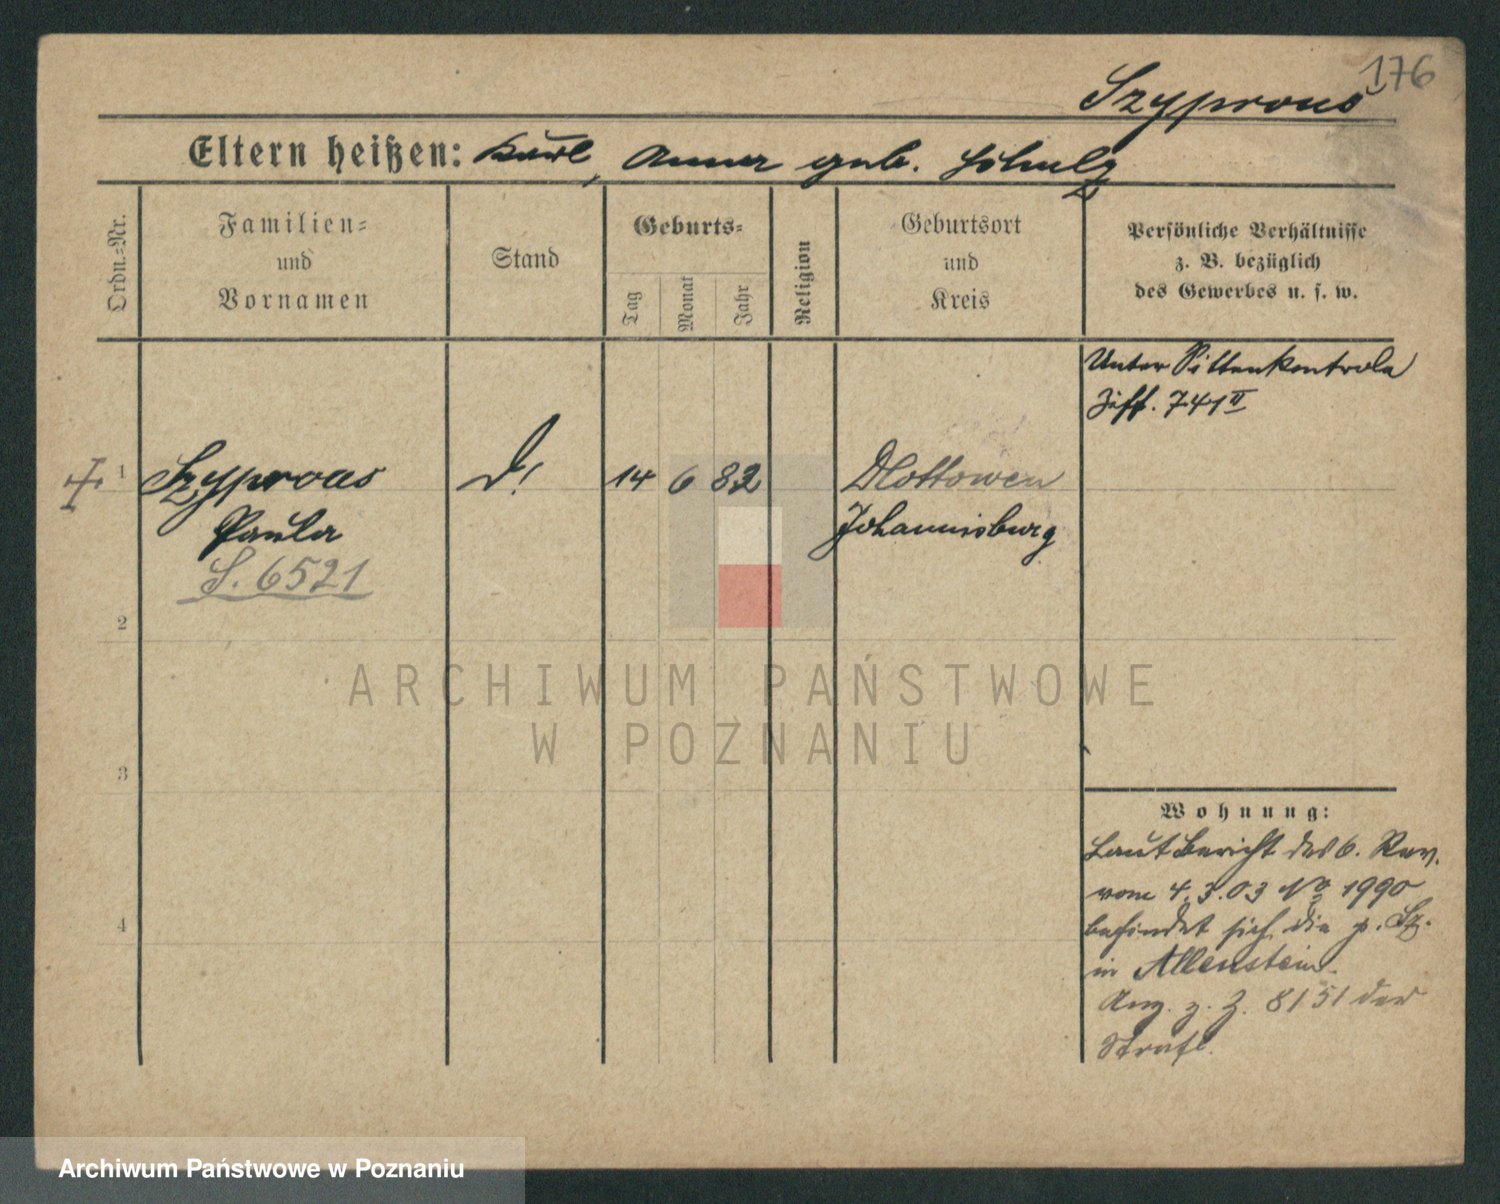 176
Szyprous
Eltern heißen: Karl, Anna geb. Schulz
Ordn.=Nr.
Familien=
und
Vornamen
Stand
Geburts=
Tag
Monat
Jahr
Religion
Geburtsort
und
Kreis
Persönliche Verhältnisse
z. B. bezüglich
des Gewerbes u. s. w.
Unter Sittenkontrole
Ziff. 741 II
1
Szyprous
Paula
S. 6521
14 6 82
Dlottowen
Johannisburg
2
3
4
Wohnung:
Laut Bericht des 6. Rev.
vom 4.3.03 No 1990
befindet sich die p. Sz.
in Allenstein.
Ang. z. Z. 8151 der
Strafl.
ARCHIWUM PAŃSTWOWE
W POZNANIU
Archiwum Państwowe w Poznaniu